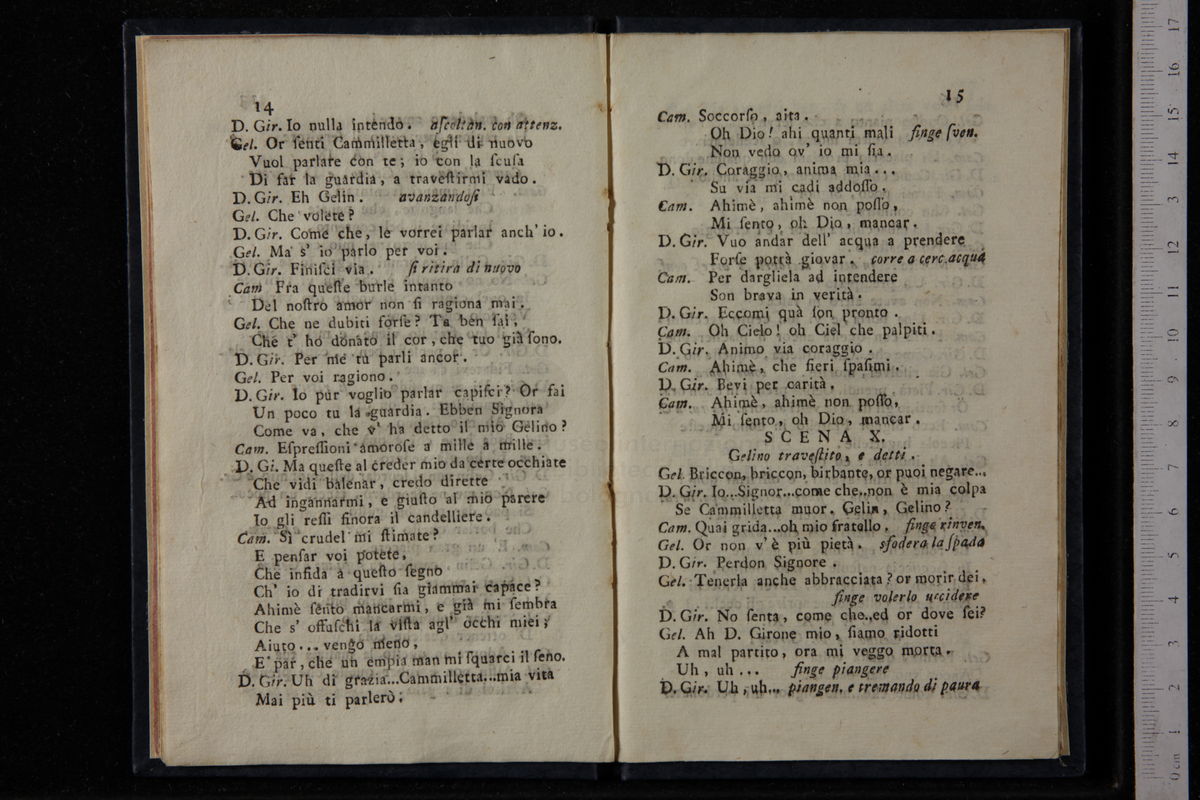 14
D. Gir. Io nulla intendo. aſcoltan. con attenz.
Gel. Or ſenti Cammilletta, egli di nuovo
Vuol parlare con te; io con la ſcuſa
Di far la guardia, a traveſtirmi vado.
D. Gir. Eh Gelin. avanzandoſi
Gel. Che volete?
D. Gir. Come che, le vorrei parlar anch' io.
Gel. Ma s' io parlo per voi.
D. Gir. Finiſci via. ſi ritira di nuovo
Cam Fra queſte burle intanto
Del noſtro amor non ſi ragiona mai.
Gel. Che ne dubiti forſe? Tu ben ſai,
Che t' ho donato il cor, che tuo già ſono.
D. Gir. Per me tu parli ancor.
Gel. Per voi ragiono.
D. Gir. Io pur voglio parlar capiſci? Or fai
Un poco tu la guardia. Ebben Signora
Come va, che v' ha detto il mio Gelino?
Cam. Eſpreſſioni amoroſe a mille a mille.
D. Gi. Ma queſte al creder mio da certe occhiate
Che vidi balenar, credo dirette
Ad ingannarmi, e giuſto al mio parere
Io gli reſſi finora il candelliere.
Cam. Sì crudel mi ſtimate?
E penſar voi potete,
Che infida a queſto ſegno
Ch' io di tradirvi ſia giammai capace?
Ahimè ſento mancarmi, e già mi ſembra
Che s' offuſchi la viſta agl' occhi miei;
Aiuto... vengo meno,
E par, che un empia man mi ſquarci il ſeno.
D. Gir. Uh di grazia...Cammilletta...mia vita
Mai più ti parlerò.
15
Cam. Soccorſo, aita.
Oh Dio! ahi quanti mali finge ſven.
Non vedo ov' io mi ſia.
D. Gir. Coraggio, anima mia...
Su via mi cadi addoſſo.
Cam. Ahimè, ahimè non poſſo,
Mi ſento, oh Dio, mancar.
D. Gir. Vuo andar dell' acqua a prendere
Forſe potrà giovar. corre a cerc.acqua
Cam. Per dargliela ad intendere
Son brava in verità.
D. Gir. Eccomi quà ſon pronto.
Cam. Oh Cielo! oh Ciel che palpiti.
D. Gir. Animo via coraggio.
Cam. Ahimè, che fieri ſpaſimi.
D. Gir. Bevi per carità.
Cam. Ahimè, ahimè non poſſo,
Mi ſento, oh Dio, mancar.
SCENA X.
Gelino traveſtito, e detti.
Gel. Briccon, briccon, birbante, or puoi negare...
D. Gir. Io...Signor...come che..non è mia colpa
Se Cammilletta muor. Gelin, Gelino?
Cam. Quai grida...oh mio fratello. finge rinven.
Gel. Or non v' è più pietà. sfodera la ſpada
D. Gir. Perdon Signore.
Gel. Tenerla anche abbracciata? or morir dei.
finge volerlo uccidere
D. Gir. No ſenta, come che..ed or dove ſei?
Gel. Ah D. Girone mio, ſiamo ridotti
A mal partito, ora mi veggo morta.
Uh, uh... finge piangere
D. Gir. Uh, uh... piangen. e tremando di paura
0 cm 1 2 3 4 5 6 7 8 9 10 11 12 13 14 15 16 17